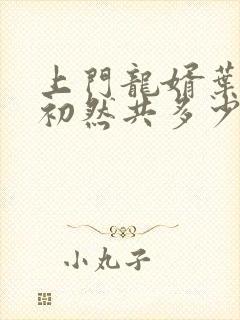 上門龍婿葉
初然共多少
小丸子